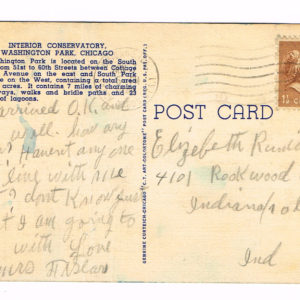 INTERIOR CONSERVATORY,
WASHINGTON PARK, CHICAGO
hington Park is located on the South
rom 51st to 60th Streets between Cottage
Avenue on the east and South Park
e on the West, containing a total area
acres. It contains 7 miles of charming
ways, walks and bridle paths and 23
of lagoons.
arrived O.K. and
well. how are
Havent any one
live with me
I dont Know just
t I am going to
with Love
Mrs
GENUINE CURTEICH-CHICAGO "C.T. ART-COLORTONE" POST CARD (REG. U.S. PAT. OFF.)
POST CARD
Elizabeth
4101 Rockwood
Indianapol
Ind
1½¢